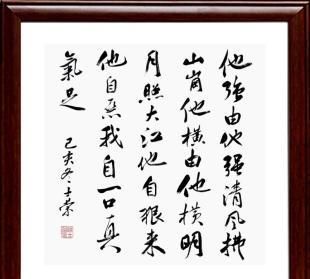 他強由他强清風拂
山崗他橫由他橫明
月照大江他自狠来
他自惡我自一口真
氣足
己亥冬士荣